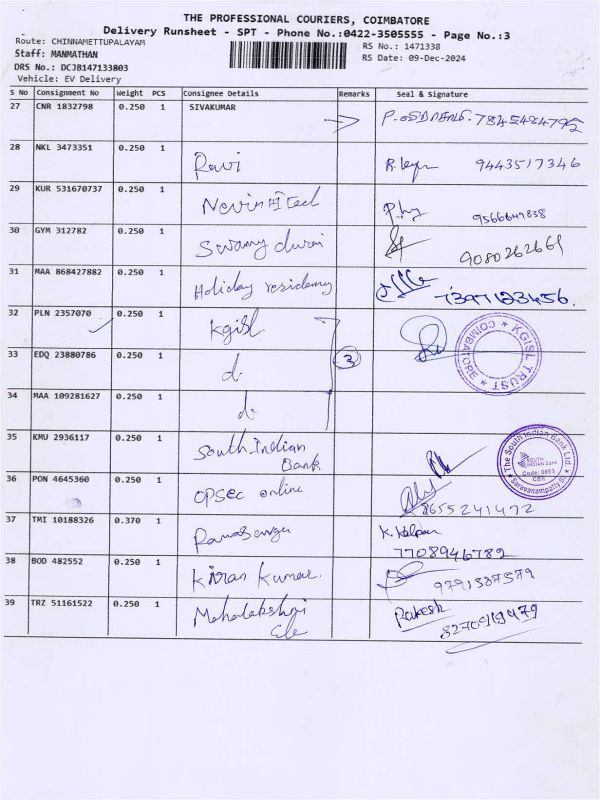 THE PROFESSIONAL COURIERS, COIMBATORE
Delivery Runsheet - SPT - Phone No.:0422-3505555 - Page No.:3
Route: CHINNAMETTUPALAYAM
Staff: MANMATHAN
RS No.: 1471338
DRS No.: DCJ8147133803
RS Date: 09-Dec-2024
Vehicle: EV Delivery
S No Consignment No Weight PCS Consignee Details Remarks Seal & Signature
27 CNR 1832798 0.250 1 SIVAKUMAR
28 NKL 3473351 0.250 1 Ravi 9443517346
29 KUR 531670737 0.250 1 Novin Hi Tech
30 GYM 312782 0.250 1 Swamy durai 9080262661
31 MAA 868427882 0.250 1 Holiday residency 7397123456.
32 PLN 2357070 0.250 1 Kgisl
KGISL TRUST * COIMBATORE *
33 EDQ 23880786 0.250 1 d. 3
34 MAA 109281627 0.250 1 d.
35 KMU 2936117 0.250 1 South Indian Bank
The South Indian Bank Ltd.
SOUTH INDIAN Bank
Code: 0693
CBR
Saravanampatty
36 PON 4645360 0.250 1 OPSEC online 8655241472
37 TMI 10188326 0.370 1 K. Kalpan
7708946782
38 BOD 482552 0.250 1 Kiran Kumar. 9791587579
39 TRZ 51161522 0.250 1 Mahalakshmi Ele Rakesh